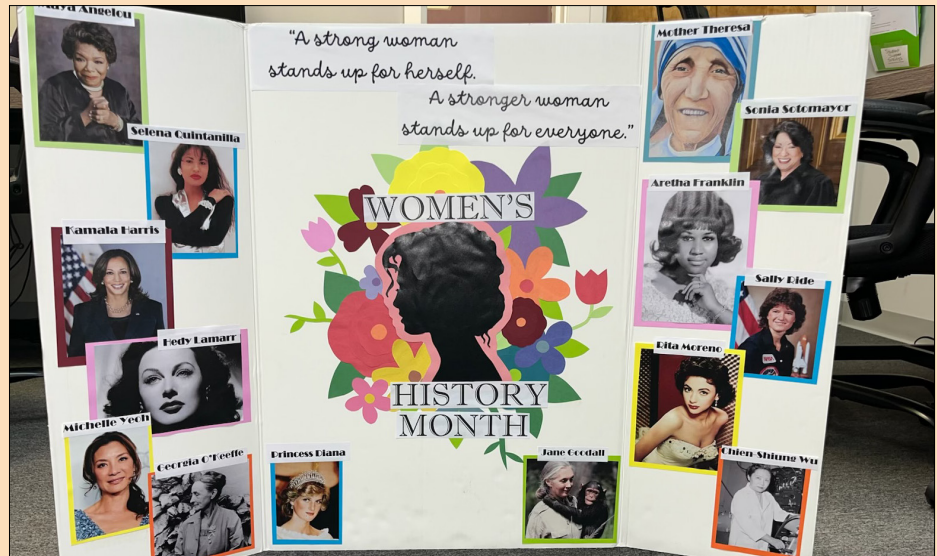 Maya Angelou
Selena Quintanilla
Kamala Harris
Hedy Lamarr
Michelle Yeoh
Georgia O'Keeffe
"A strong woman
stands up for herself.
A stronger woman
stands up for everyone."
WOMEN'S
HISTORY
MONTH
Princess Diana
Jane Goodall
Mother Theresa
Sonia Sotomayor
Aretha Franklin
Sally Ride
Rita Moreno
Chien-Shiung Wu